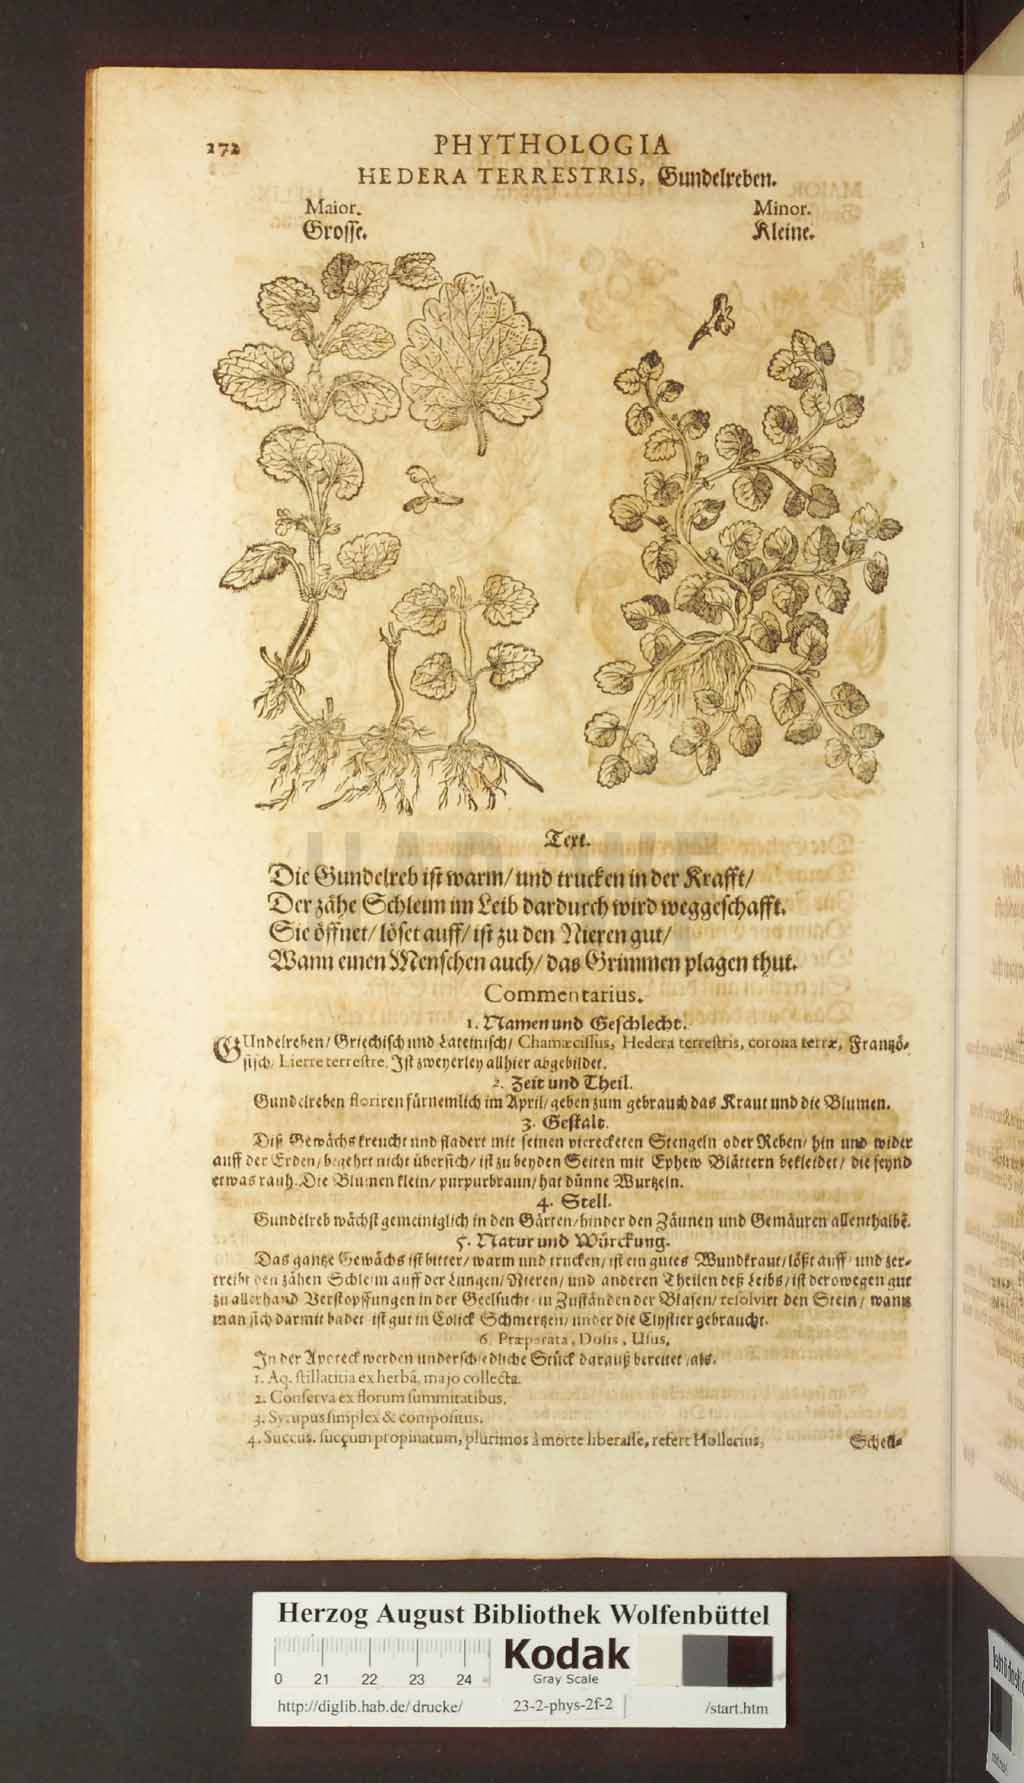 272
PHYTHOLOGIA
HEDERA TERRESTRIS, Gundelreben.
Maior. Minor.
Grosse. Kleine.
Text.
Die Gundelreb ist warm/ und trucken in der Krafft/
Der zähe Schleim im Leib dardurch wird weggeschafft.
Sie öffnet/ löset auff/ ist zu den Nieren gut/
Wann einen Menschen auch/ das Grimmen plagen thut.
Commentarius.
1. Namen und Geschlecht.
GUndelreben/ Griechisch und Lateinisch/ Chamæcissus, Hedera terrestris, corona terræ, Frantzö-
sisch/ Lierre terrestre. Ist zweyerley allhier abgebildet.
2. Zeit und Theil.
Gundelreben floriren fürnemlich im April/ geben zum gebrauch das Kraut und die Blumen.
3. Gestalt.
Diß Gewächs kreucht und fladert mit seinen viereckten Stengeln oder Reben/ hin und wider
auff der Erden/ begehrt nicht übersich/ ist zu beyden Seiten mit Ephew Blättern bekleidet/ die seynd
etwas rauh. Die Blumen klein/ purpurbraun/ hat dünne Wurtzeln.
4. Stell.
Gundelreb wächst gemeiniglich in den Gärten/ hinder den Zäunen und Gemäuren allenthalbē.
5. Natur und Würckung.
Das gantze Gewächs ist bitter/ warm und trucken/ ist ein gutes Wundkraut/ lößt auff/ und zer-
treibt den zähen Schleim auff der Lungen/ Nieren/ und anderen Theilen deß Leibs/ ist derowegen gut
zu allerhand Verstopffungen in der Geelsucht/ in Zuständen der Blasen/ resolvirt den Stein/ wann
man sich darmit badet/ ist gut in Colick Schmertzen/ under die Clystier gebraucht.
6. Præparata, Dosis, Usus,
In der Apoteck werden underschiedliche Stück darauß bereitet/ als.
1. Aq. stillatitia ex herbâ, majo collecta.
2. Conserva ex florum summitatibus.
3. Syrupus simplex & compositus.
4. Succus. succum propinatum, plurimos à morte liberasse, refert Hollerius,
Schell-
HAB WF
Herzog August Bibliothek Wolfenbüttel
0 21 22 23 24
Kodak
Gray Scale
http://diglib.hab.de/drucke/ 23-2-phys-2f-2 /start.htm